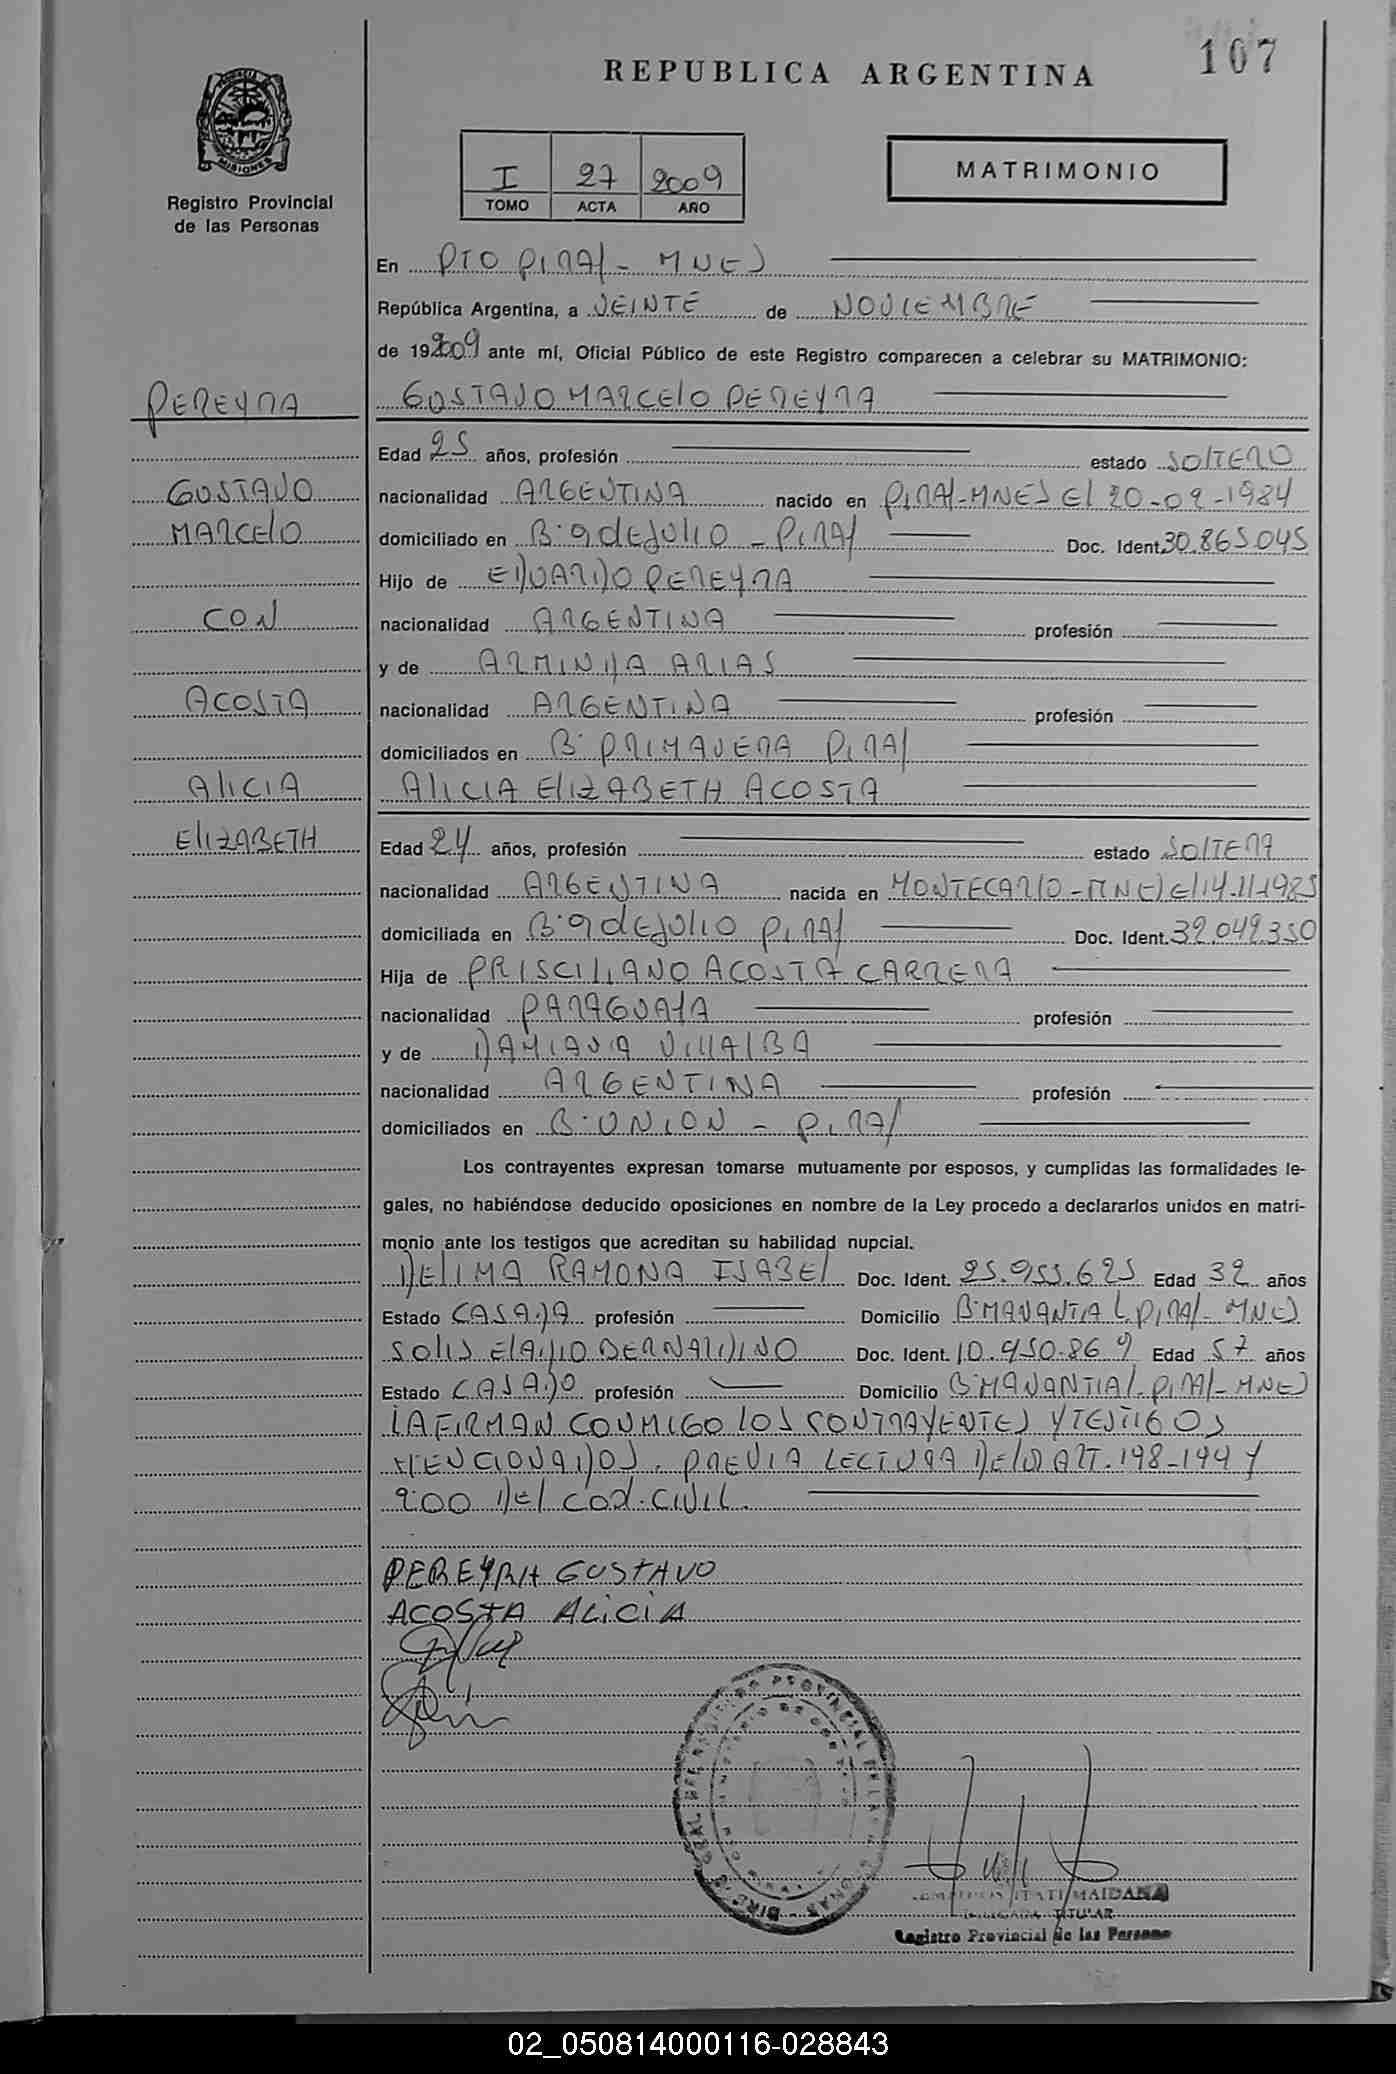 107
REPUBLICA ARGENTINA
PROVINCIA DE
MISIONES
Registro Provincial
de las Personas
I 27 2009
TOMO ACTA AÑO
MATRIMONIO
En PTO PIRAY - MNES
República Argentina, a VEINTE de NOVIEMBRE
de 19 2009 ante mí, Oficial Público de este Registro comparecen a celebrar su MATRIMONIO:
PEREYRA
GUSTAVO MARCELO PEREYRA
Edad 25 años, profesión estado SOLTERO
GUSTAVO
nacionalidad ARGENTINA nacido en PIRAY-MNES El 20-02-1984
MARCELO
domiciliado en B: 9 de JULIO - PIRAY Doc. Ident. 30.865.045
Hijo de EDUARDO PEREYRA
CON
nacionalidad ARGENTINA profesión
y de ARMINDA ARIAS
ACOSTA
nacionalidad ARGENTINA profesión
domiciliados en B: PRIMAVERA PIRAY
ALICIA
ALICIA ELIZABETH ACOSTA
ELIZABETH
Edad 24 años, profesión estado SOLTERA
nacionalidad ARGENTINA nacida en MONTECARLO-MNES El 14-11-1985
domiciliada en B: 9 de JULIO PIRAY Doc. Ident. 32.042.350
Hija de PRISCILIANO ACOSTA CARRERA
nacionalidad PARAGUAYA profesión
y de DAMIANA VILLALBA
nacionalidad ARGENTINA profesión
domiciliados en B: UNION - PIRAY
Los contrayentes expresan tomarse mutuamente por esposos, y cumplidas las formalidades le-
gales, no habiéndose deducido oposiciones en nombre de la Ley procedo a declararlos unidos en matri-
monio ante los testigos que acreditan su habilidad nupcial.
DELIMA RAMONA ISABEL Doc. Ident. 25.955.625 Edad 32 años
Estado CASADA profesión Domicilio B: MANANTIAL PIRAY-MNES
SOLIS ELADIO BERNARDINO Doc. Ident. 10.950.869 Edad 57 años
Estado CASADO profesión Domicilio B: MANANTIAL-PIRAY-MNES
LA FIRMAN CONMIGO LOS CONTRAYENTES Y TESTIGOS
MENCIONADOS, PREVIA LECTURA DE LOS ART. 198-199 Y
200 DEL COD. CIVIL.
PEREYRA GUSTAVO
ACOSTA ALICIA
ITATI MAIDANA
DELEGADA TITULAR
Registro Provincial de las Personas
02_050814000116-028843